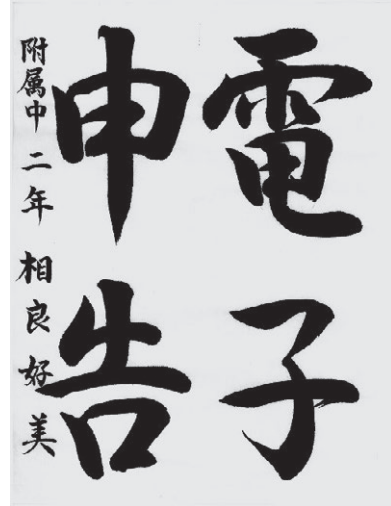 電子
申告
附属中 二年 相良好美